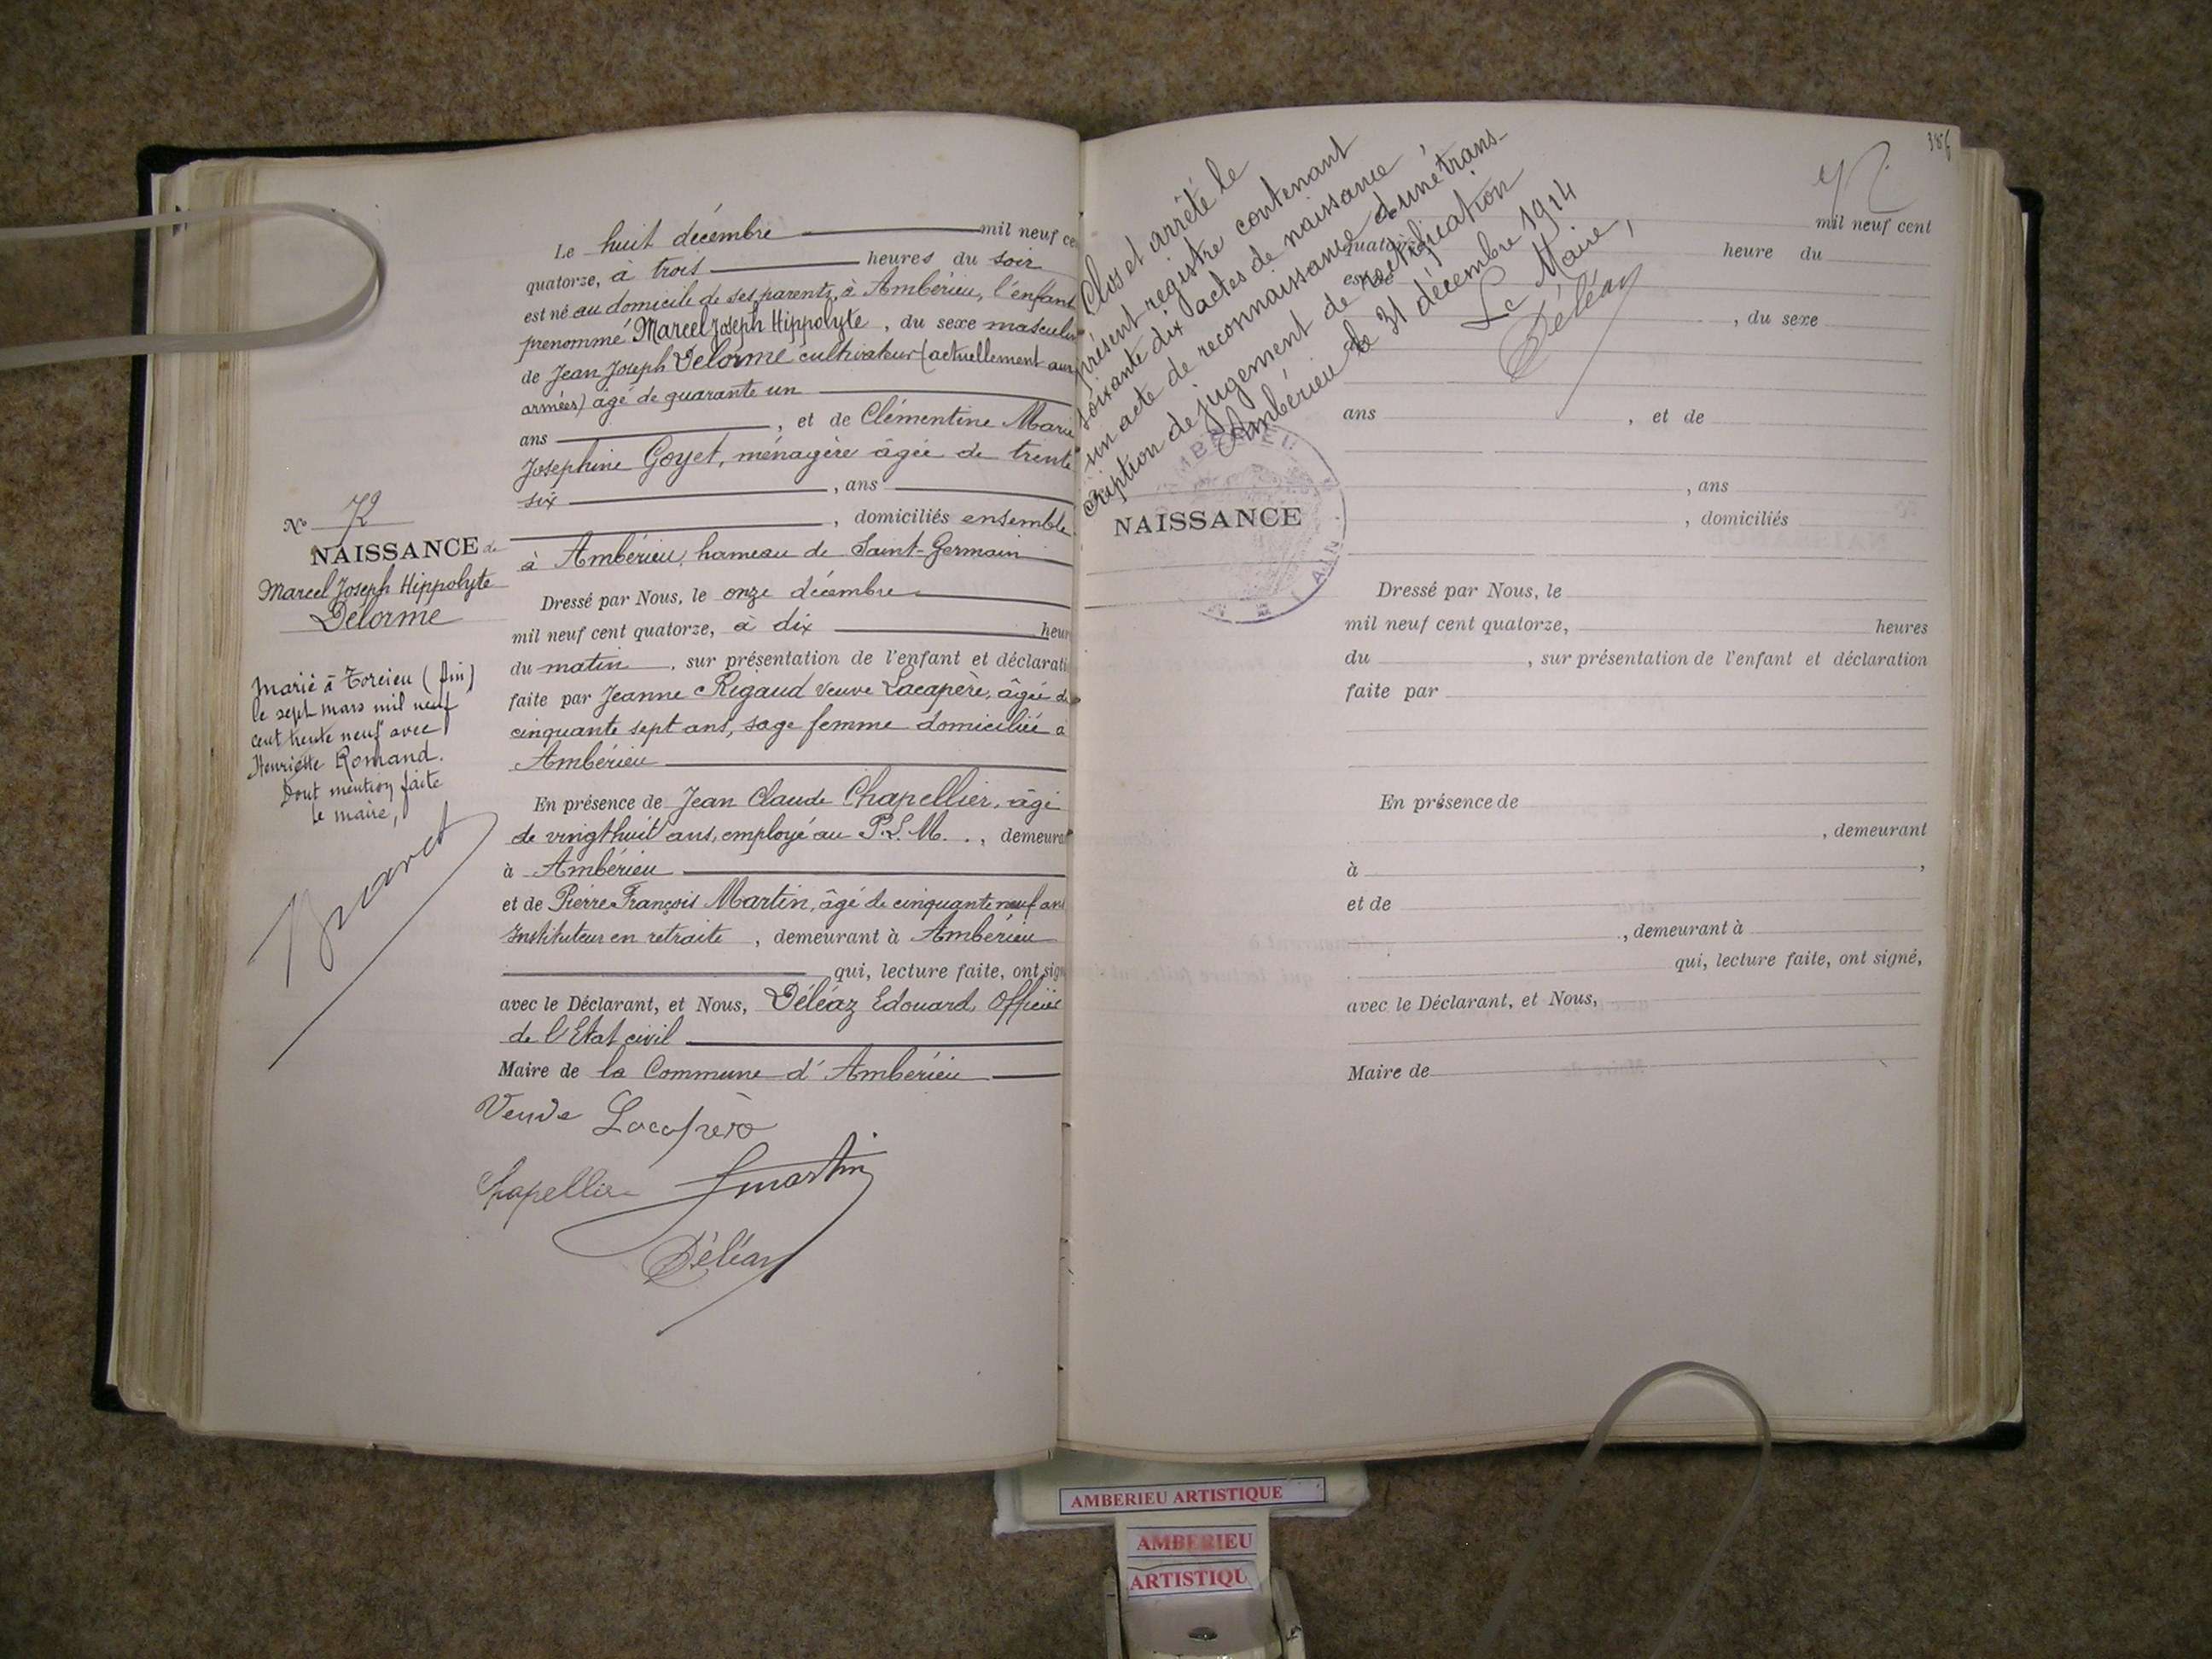 Le huit décembre mil neuf ce
quatorze, à trois heures du soir
est né au domicile de ses parents, à Ambérieu, l'enfant
prénommé Marcel Joseph Hippolyte, du sexe masculin
de Jean Joseph Delorme cultivateur (actuellement aux
armées) âgé de quarante un
ans , et de Clémentine Marie
Joséphine Goyet, ménagère âgée de trente
six , ans
, domiciliés ensemble
à Ambérieu, hameau de Saint-Germain
Dressé par Nous, le onze décembre
mil neuf cent quatorze, à dix heur
du matin , sur présentation de l'enfant et déclarati
faite par Jeanne Rigaud veuve Lacapère, âgée de
cinquante sept ans, sage femme domiciliée à
Ambérieu
En présence de Jean Claude Chapellier, âgé
de vingt huit ans, employé au P.L.M. , demeurant
à Ambérieu
et de Pierre François Martin, âgé de cinquante neuf ans
Instituteur en retraite , demeurant à Ambérieu
qui, lecture faite, ont sign
avec le Déclarant, et Nous, Déléaz Edouard, Officier
de l'Etat civil
Maire de la Commune d'Ambérieu
Veuve Lacapère
Chapellier
Martin
Déléaz
N° 72
NAISSANCE de
Marcel Joseph Hippolyte
Delorme
Marié à Torcieu (Ain)
le sept mars mil neuf
cent trente neuf avec
Henriette Romand.
Dont mention faite
le maire,
Clos et arrêté le
présent registre contenant
soixante dix actes de naissance,
un acte de reconnaissance d'une trans-
cription de jugement de rectification
Ambérieu le 31 décembre 1914
Le Maire,
Déléaz
386
mil neuf cent
quatorze heure du
est né
, du sexe
de
ans , et de
, ans
, domiciliés
NAISSANCE
AIN
Dressé par Nous, le
mil neuf cent quatorze, heures
du , sur présentation de l'enfant et déclaration
faite par
En présence de
, demeurant
à ,
et de
, demeurant à
qui, lecture faite, ont signé,
avec le Déclarant, et Nous,
Maire de
AMBERIEU ARTISTIQUE
AMBERIEU
ARTISTIQU